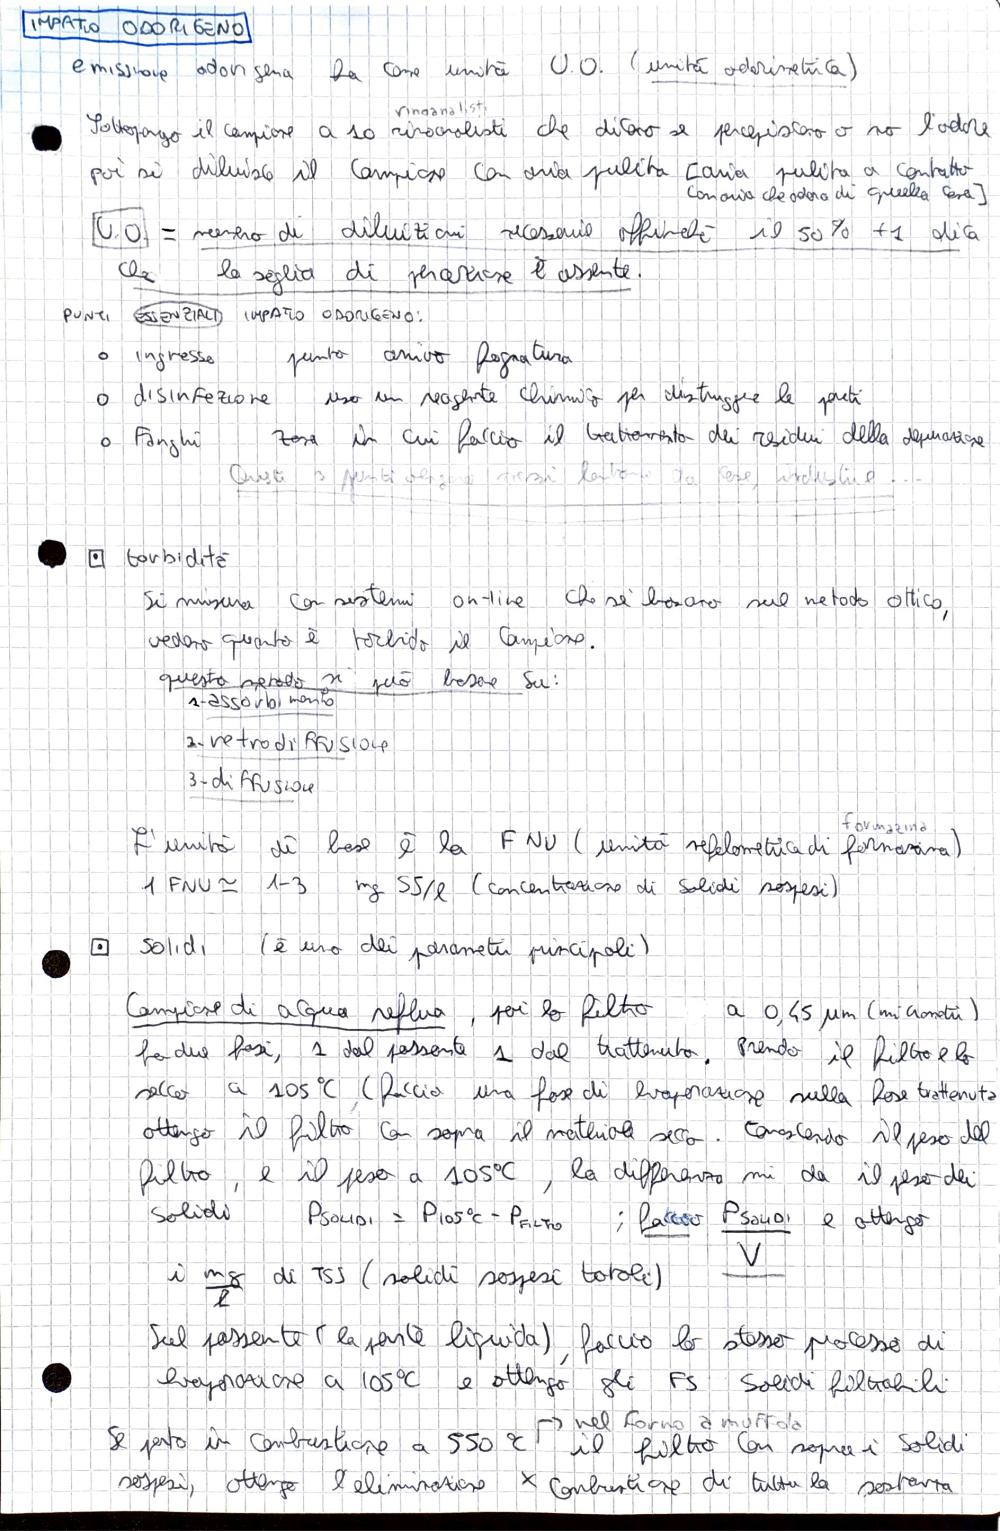 IMPATTO ODORIGENO
emissione odorigena ha come unità U.O. (unità odorimetrica)
rinoanalisti
Sottopongo il campione a 10 rinoanalisti che dicono se percepiscono o no l'odore
poi si diluisce il campione con aria pulita [aria pulita a contatto
con aria che odora di quella cosa]
U.O = numero di diluizioni necessarie affinché il 50% +1 dica
che la soglia di percezione è assente.
PUNTI ESSENZIALI IMPATTO ODORIGENO:
o ingresso punto arrivo fognatura
o disinfezione uso un reagente chimico per distruggere le parti
o Fanghi zona in cui faccio il trattamento dei residui della depurazione
Questi 3 punti vengono messi lontano da case, industrie ...
torbidità
Si misura con sistemi on-line che si basano sul metodo ottico,
vedono quanto è torbido il campione.
questo metodo si può basare su:
1-assorbimento
2-retrodiffusione
3-diffusione
formazina
L'unità di base è la FNU (unità nefelometrica di formazina)
1 FNU ≃ 1-3 mg SS/l (concentrazione di solidi sospesi)
solidi (è uno dei parametri principali)
Campione di acqua reflua, poi lo filtro a 0,45 µm (micrometri)
ho due fasi, 1 dal passante 1 dal trattenuto. Prendo il filtro e lo
secco a 105°C (faccio una fase di evaporazione sulla fase trattenuta
ottengo il filtro con sopra il materiale secco. Conoscendo il peso del
filtro, e il peso a 105°C, la differenza mi da il peso dei
solidi PSOLIDI = P105°C - PFILTRO ; faccio PSOLIDI e ottengo
V
i mg di TSS (solidi sospesi totali)
l
Sul passante (la parte liquida), faccio lo stesso processo di
evaporazione a 105°C e ottengo gli FS solidi filtrabili
→ nel forno a muffola
Se porto in combustione a 550°C il filtro con sopra i solidi
sospesi, ottengo l'eliminazione x combustione di tutta la sostanza